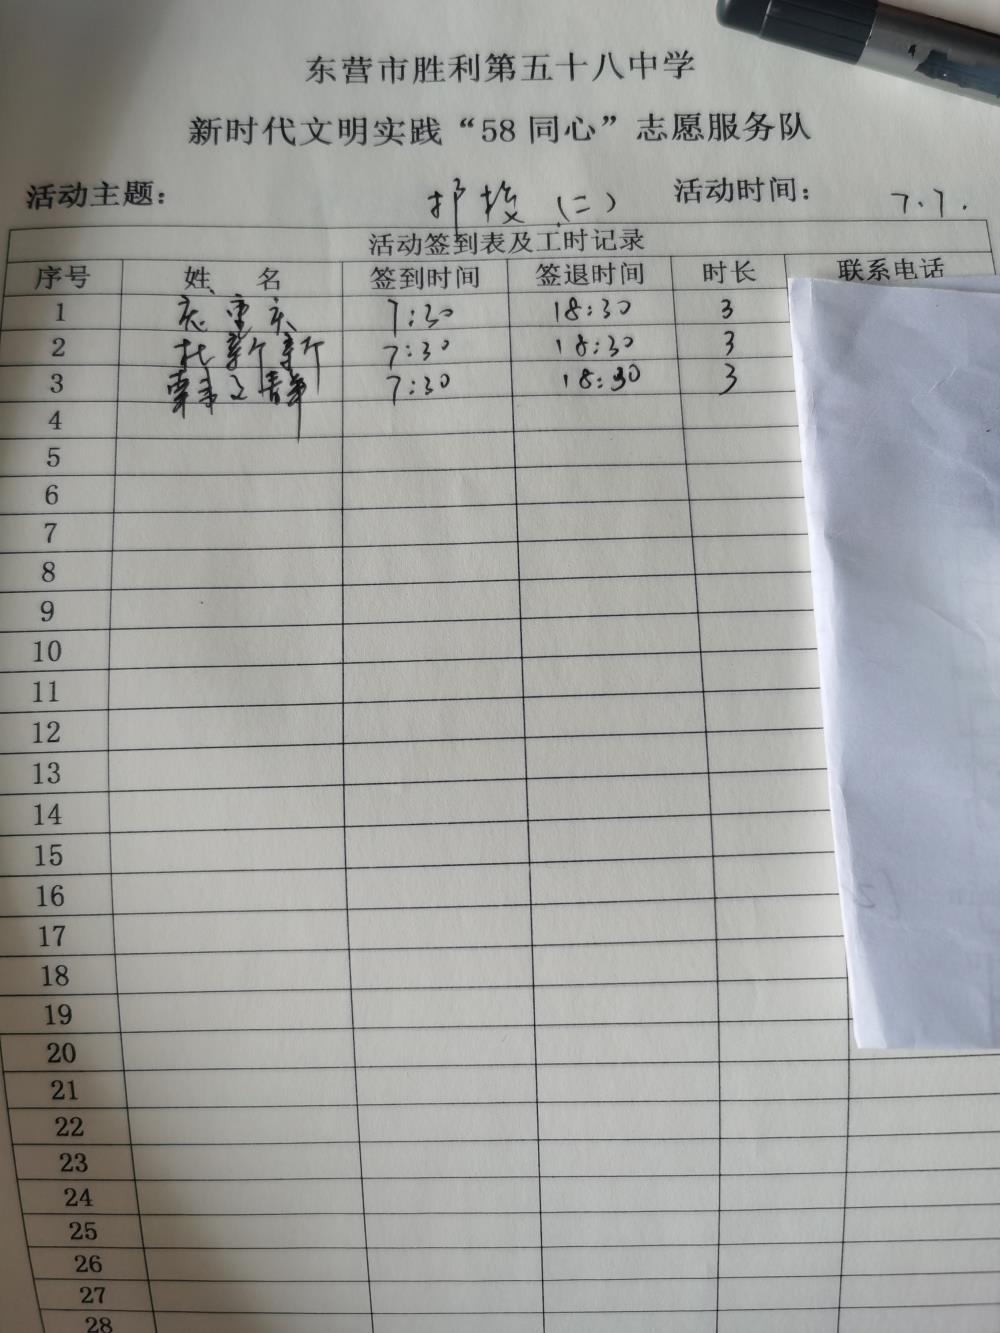 东营市胜利第五十八中学
新时代文明实践“58同心”志愿服务队
活动主题： （二） 活动时间： 7.7.
活动签到表及工时记录
序号 姓名 签到时间 签退时间 时长 联系电话
1 7:30 18:30 3
2 杜新新 7:30 18:30 3
3 7:30 18:30 3
4
5
6
7
8
9
10
11
12
13
14
15
16
17
18
19
20
21
22
23
24
25
26
27
28